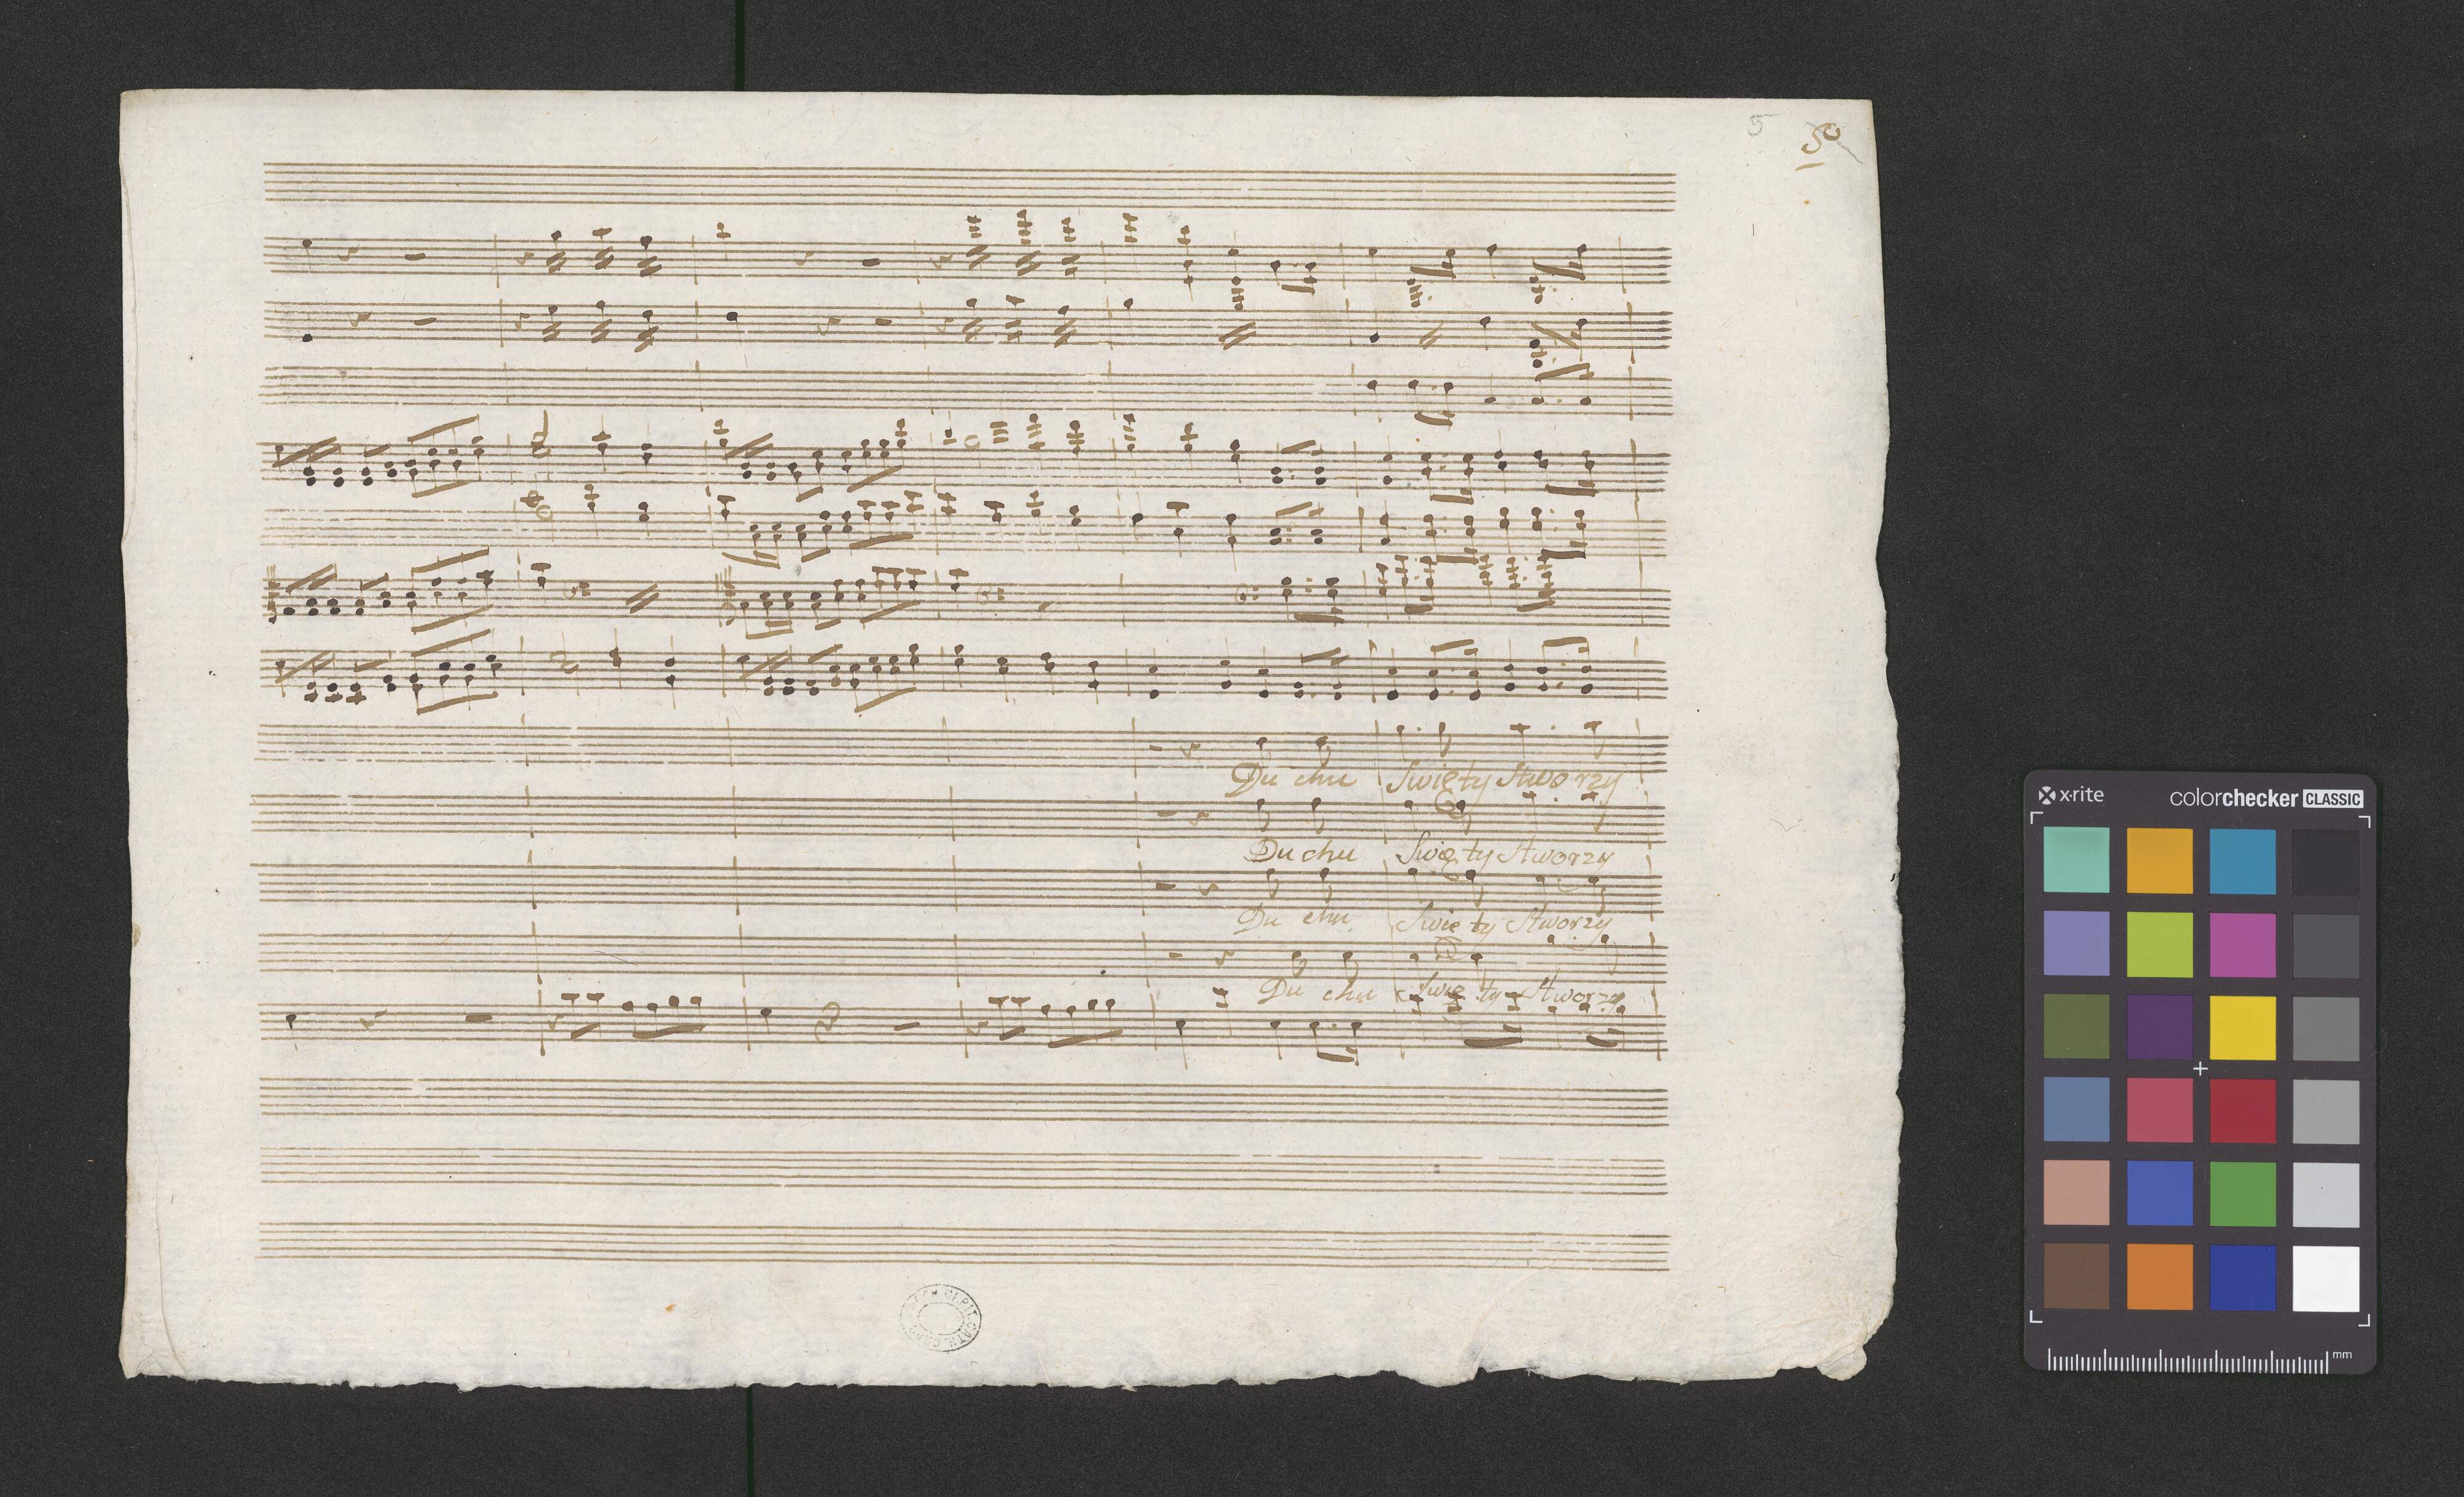 5 50
Du chu Swięty Stworzy
Du chu Swię ty Stworzy
Du chu Swię ty Stworzy
Du chu Swię ty Stworzy
x·rite colorchecker CLASSIC
mm